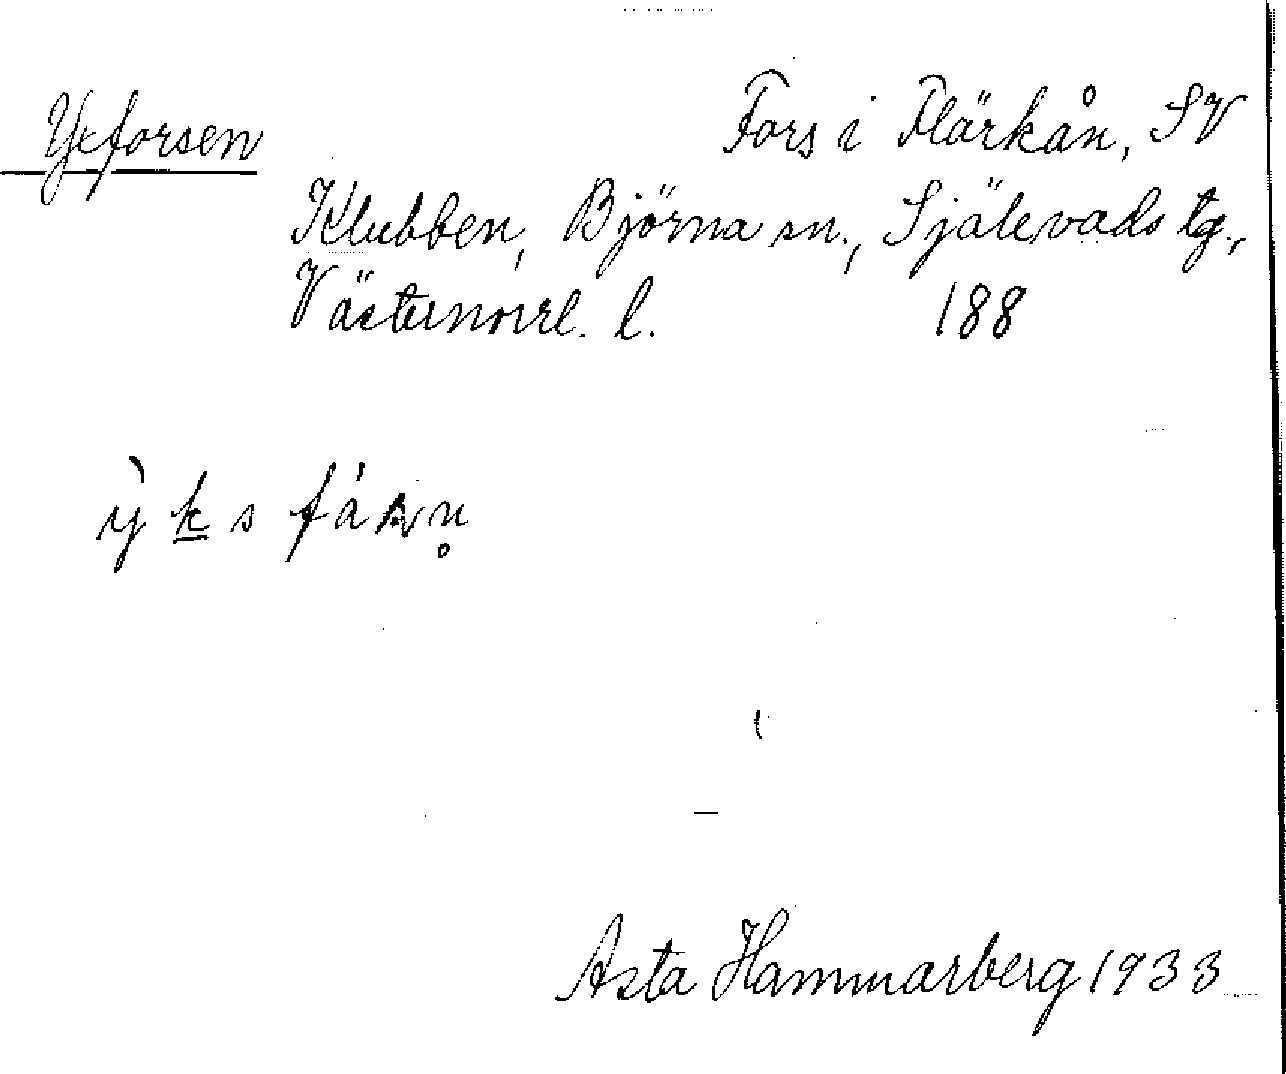 Yxforsen
Fors i Flärkån, SV
Klubben, Björna sn., Själevads tg.,
Västernorrl. l. 188
Asta Hammarberg 1933